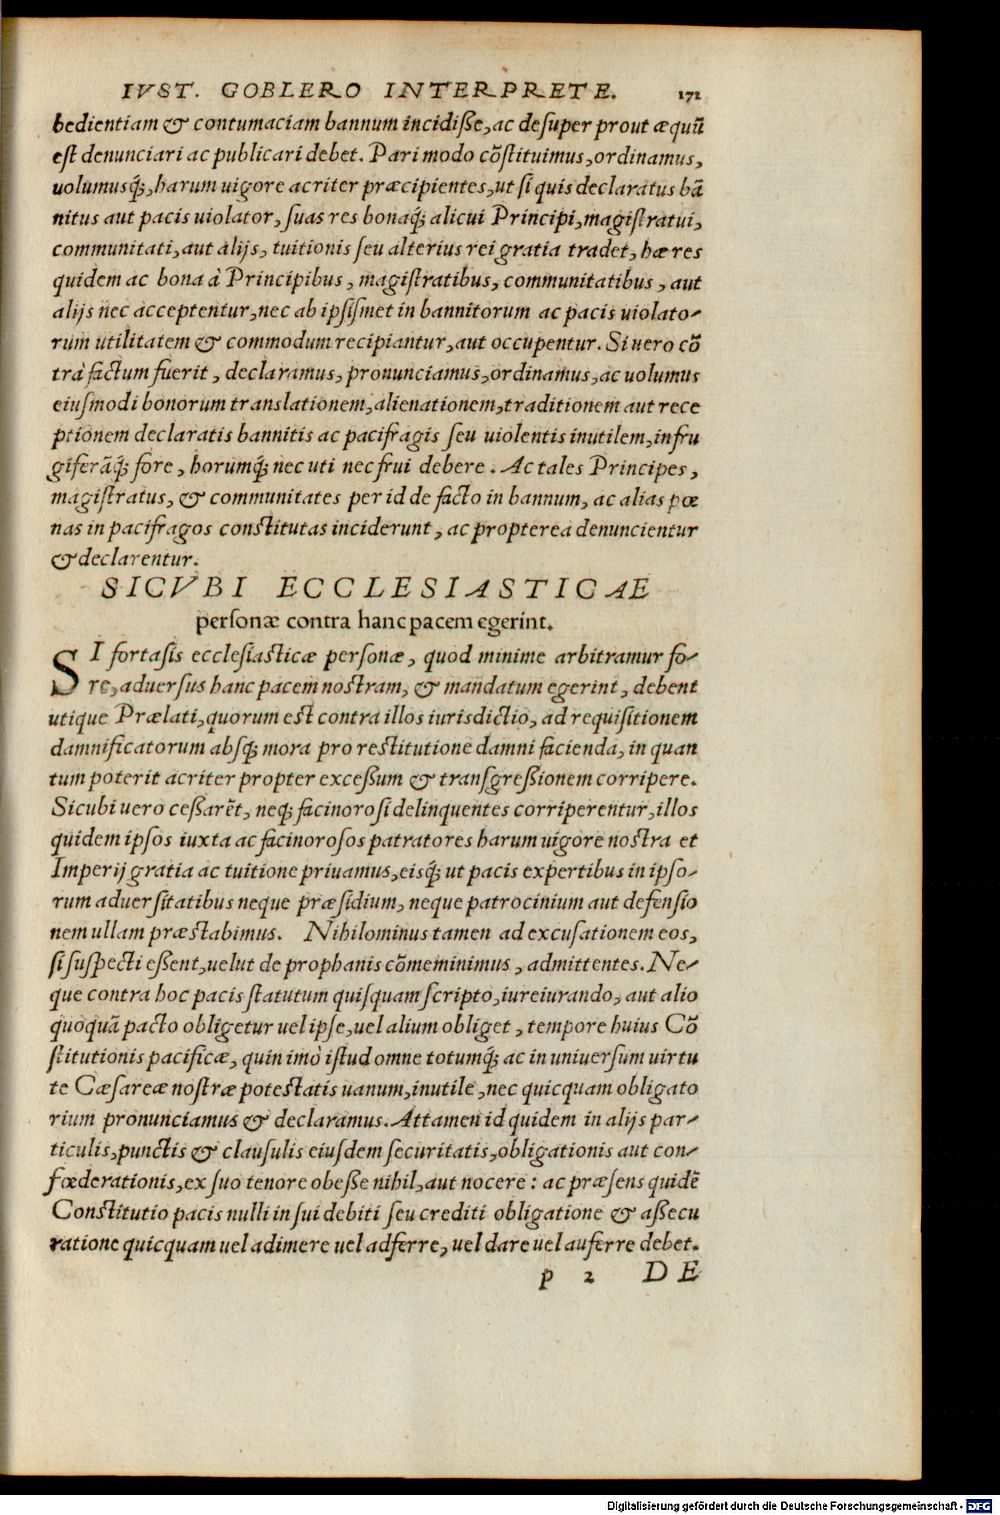 IVST. GOBLERO INTERPRETE. 171
bedientiam & contumaciam bannum incidiße, ac desuper prout æquũ
est denunciari ac publicari debet. Pari modo cõstituimus, ordinamus,
uolumusq́;, harum uigore acriter præcipientes, ut si quis declaratus bã
nitus aut pacis uiolator, suas res bonaq́; alicui Principi, magistratui,
communitati, aut alijs, tuitionis seu alterius rei gratia tradet, hæ res
quidem ac bona à Principibus, magistratibus, communitatibus, aut
alijs nec acceptentur, nec ab ipsismet in bannitorum ac pacis uiolato-
rum utilitatem & commodum recipiantur, aut occupentur. Si uero cõ
trà factum fuerit, declaramus, pronunciamus, ordinamus, ac uolumus
eiusmodi bonorum translationem, alienationem, traditionem aut rece
ptionem declaratis bannitis ac pacifragis seu uiolentis inutilem, infru
giferãq́; fore, horumq́; nec uti nec frui debere. Ac tales Principes,
magistratus, & communitates per id de facto in bannum, ac alias pœ
nas in pacifragos constitutas inciderunt, ac propterea denuncientur
& declarentur.
SICVBI ECCLESIASTICAE
personæ contra hanc pacem egerint.
SI fortasis ecclesiasticæ personæ, quod minime arbitramur fo-
re, aduersus hanc pacem nostram, & mandatum egerint, debent
utique Prælati, quorum est contra illos iurisdictio, ad requisitionem
damnificatorum absq; mora pro restitutione damni facienda, in quan
tum poterit acriter propter exceßum & transgreßionem corripere.
Sicubi uero ceßarẽt, neq; facinorosi delinquentes corriperentur, illos
quidem ipsos iuxta ac facinorosos patratores harum uigore nostra et
Imperij gratia ac tuitione priuamus, eisq́; ut pacis expertibus in ipso-
rum aduersitatibus neque præsidium, neque patrocinium aut defensio
nem ullam præstabimus. Nihilominus tamen ad excusationem eos,
si suspecti eßent, uelut de prophanis cõmeminimus, admittentes. Ne-
que contra hoc pacis statutum quisquam scripto, iureiurando, aut alio
quoquã pacto obligetur uel ipse, uel alium obliget, tempore huius Cõ
stitutionis pacificæ, quin imò istud omne totumq́; ac in uniuersum uirtu
te Cæsareæ nostræ potestatis uanum, inutile, nec quicquam obligato
rium pronunciamus & declaramus. Attamen id quidem in alijs par-
ticulis, punctis & clausulis eiusdem securitatis, obligationis aut con-
fœderationis, ex suo tenore obeße nihil, aut nocere: ac præsens quidẽ
Constitutio pacis nulli in sui debiti seu crediti obligatione & aßecu
ratione quicquam uel adimere uel adferre, uel dare uel auferre debet.
p 2 DE
Digitalisierung gefördert durch die Deutsche Forschungsgemeinschaft - DFG